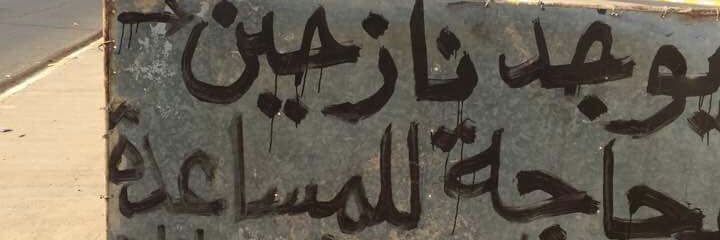 يوجد نازحين
بحاجة للمساعدة